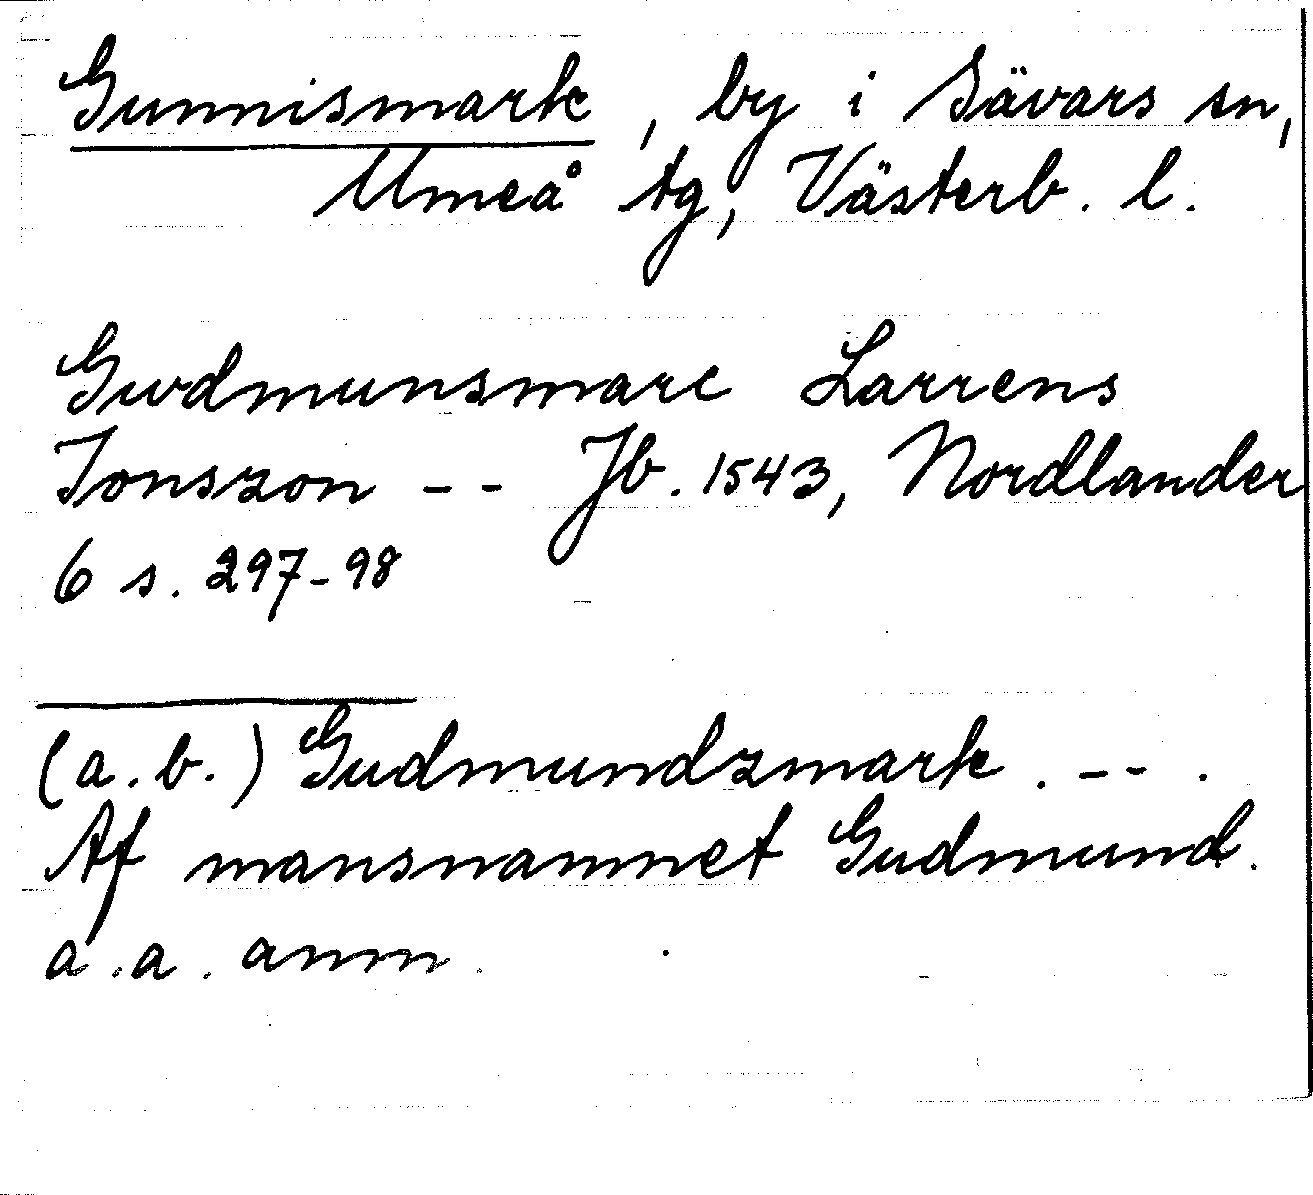 Gunnismark, by i Sävars sn,
Umeå tg, Västerb. l.
Gvdmunsmarc Larrens
Jonszon -- Jb. 1543, Nordlander
6 s. 297-98
(a.b.) Gudmundzmark. --.
Af mansnamnet Gudmund.
a.a. anm.